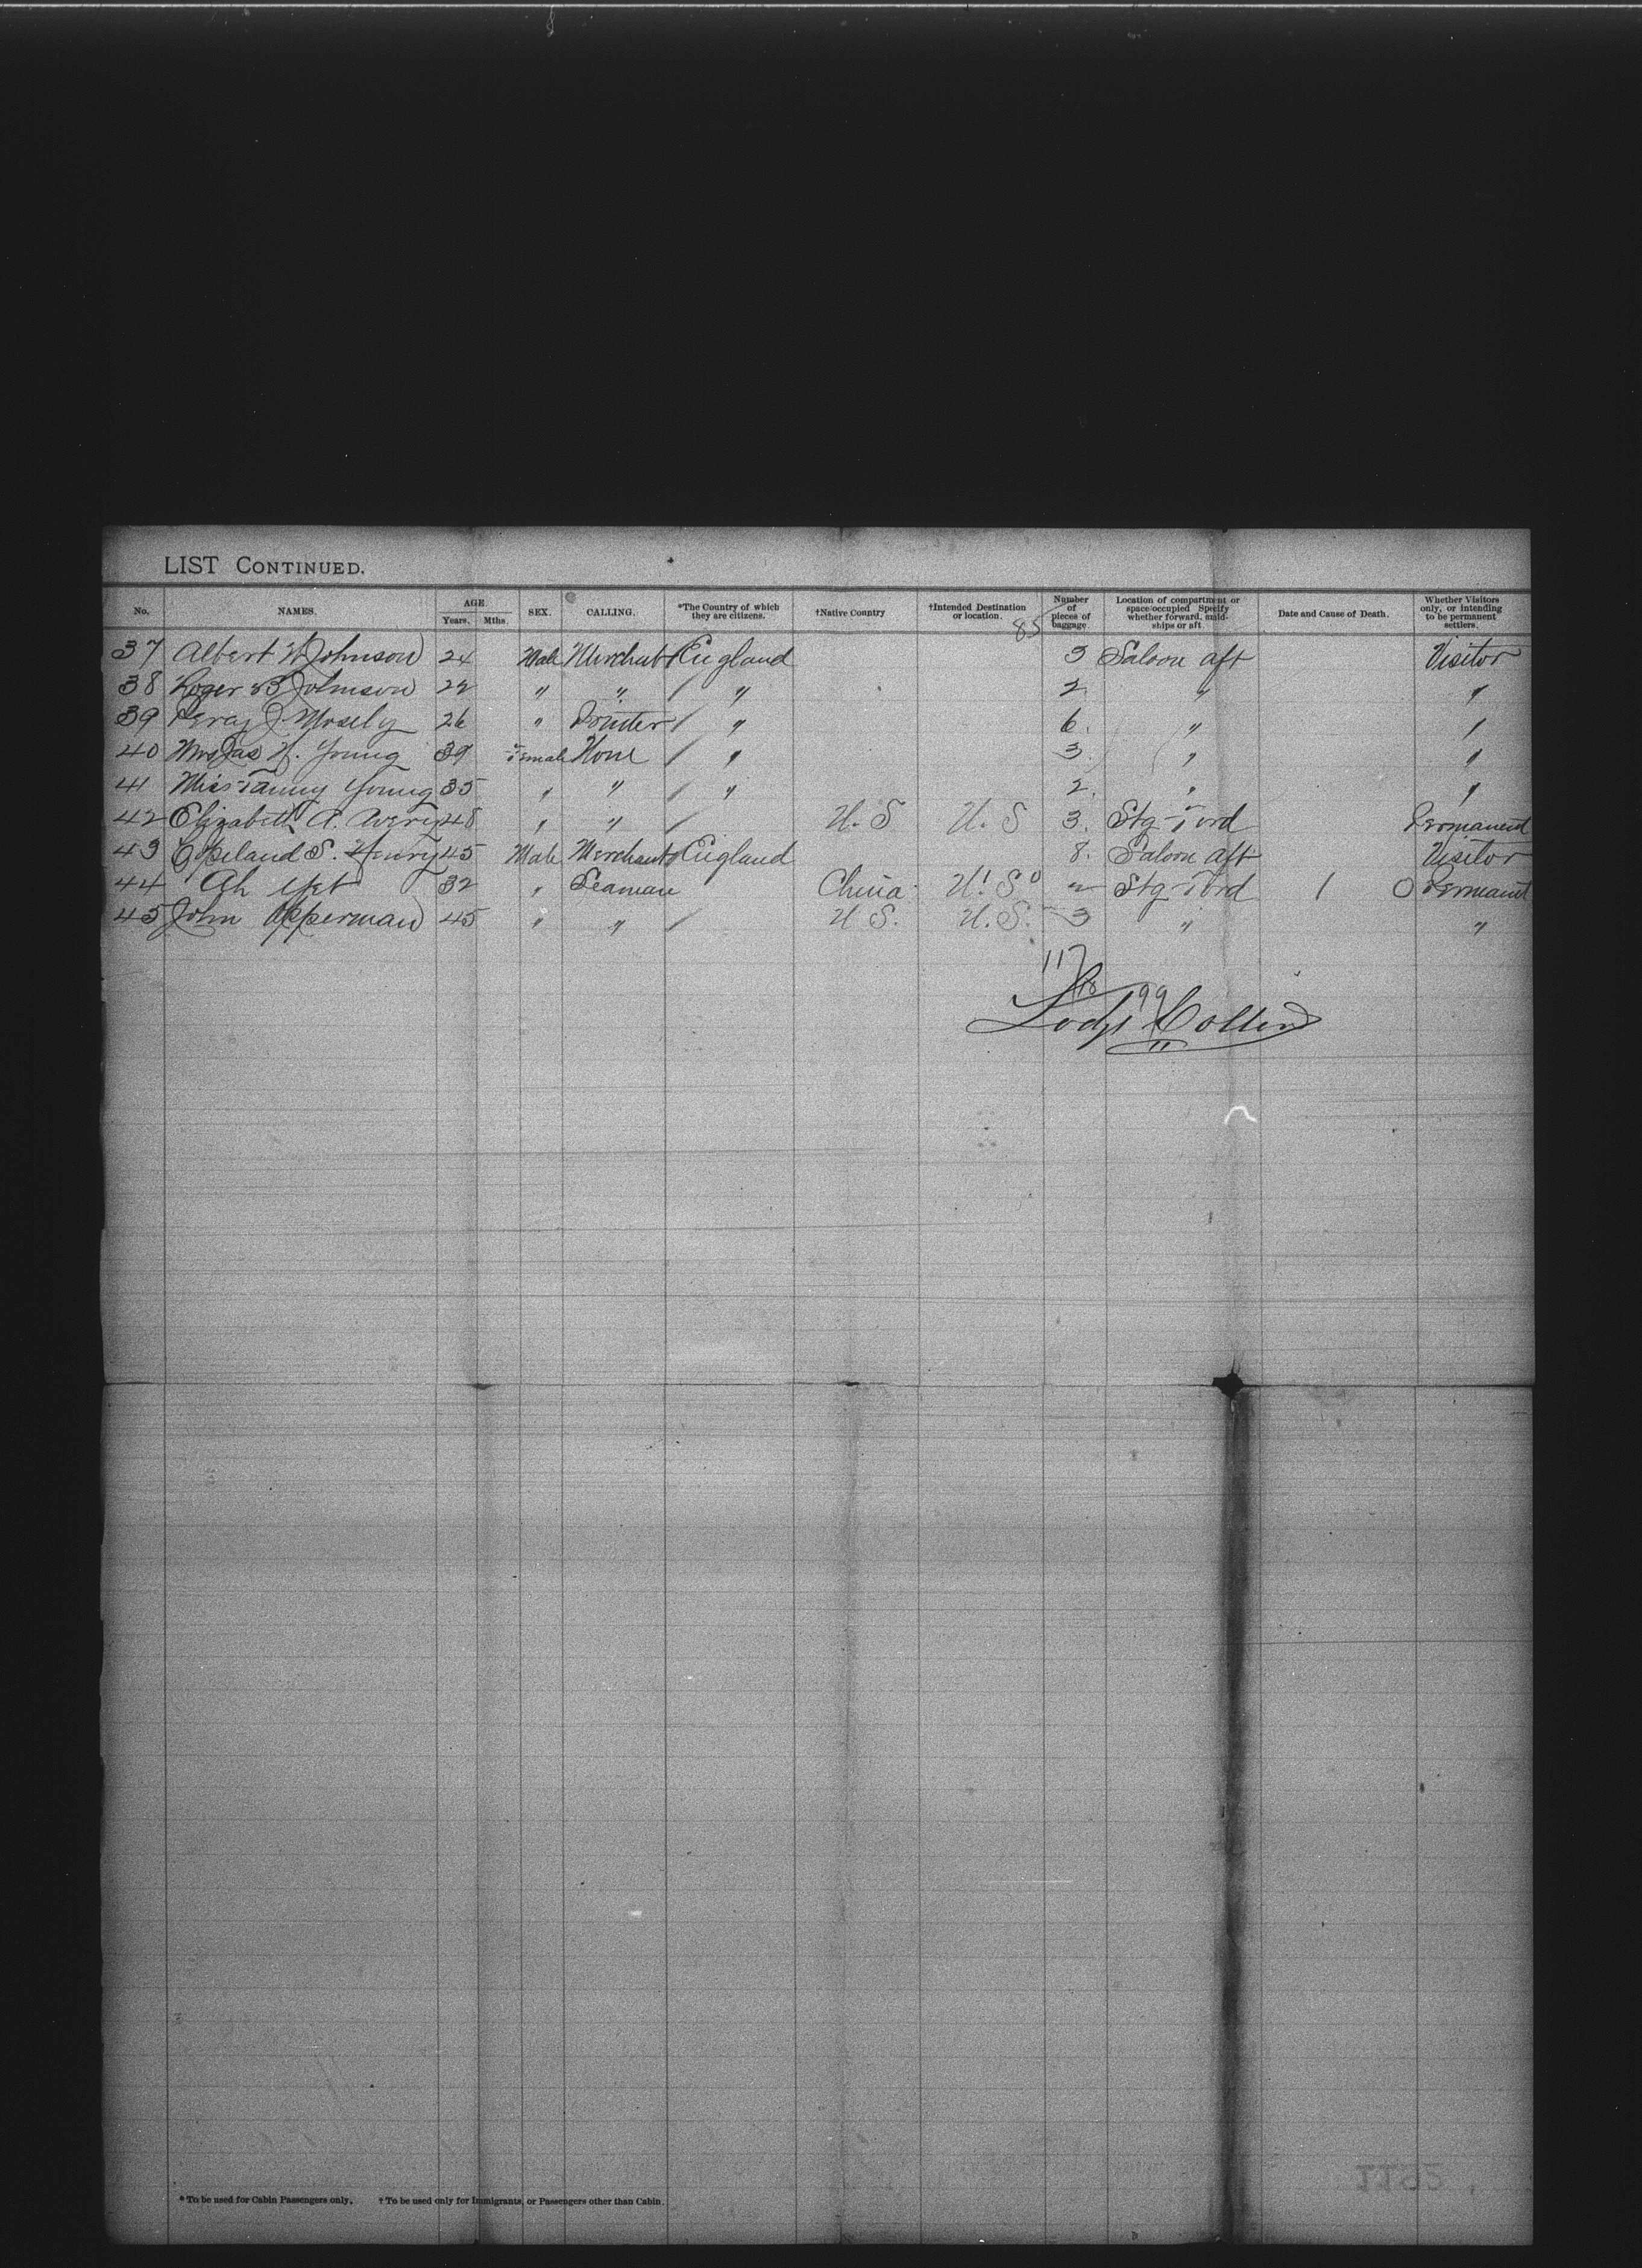 LIST CONTINUED.
No. NAMES. AGE. Years. Mths. SEX. CALLING. *The Country of which they are citizens. †Native Country †Intended Destination or location. Number of pieces of baggage. Location of compartment or space occupied Specify whether forward, mid-ships or aft. Date and Cause of Death. Whether Visitors only, or intending to be permanent settlers.
85
37 Albert W Johnson 24 Male Merchant / England 3 Saloon aft Visitor
38 Roger B Johnson 22 " " / " 2. " "
39 Percy J. Mosely 26 " Printer / " 6. " "
40 Mrs Jas H. Young 39 Female None / " 3. " "
41 Miss Fanny Young 35 " " / " 2. " "
42 Elizabeth A. Avery 48 " " / U. S U. S 3. Stg Fwrd Permanent
43 Copeland S. Henry 45 Male Merchant / England 8. Saloon Aft Visitor
44 Ah Yet 32 " Seaman China U. S 2 Stg Fwrd 1 0 Permanent
45 John Opperman 45 " " / U S. U. S. 3 " "
117
18
99
11
* To be used for Cabin Passengers only. † To be used only for Immigrants, or Passengers other than Cabin.